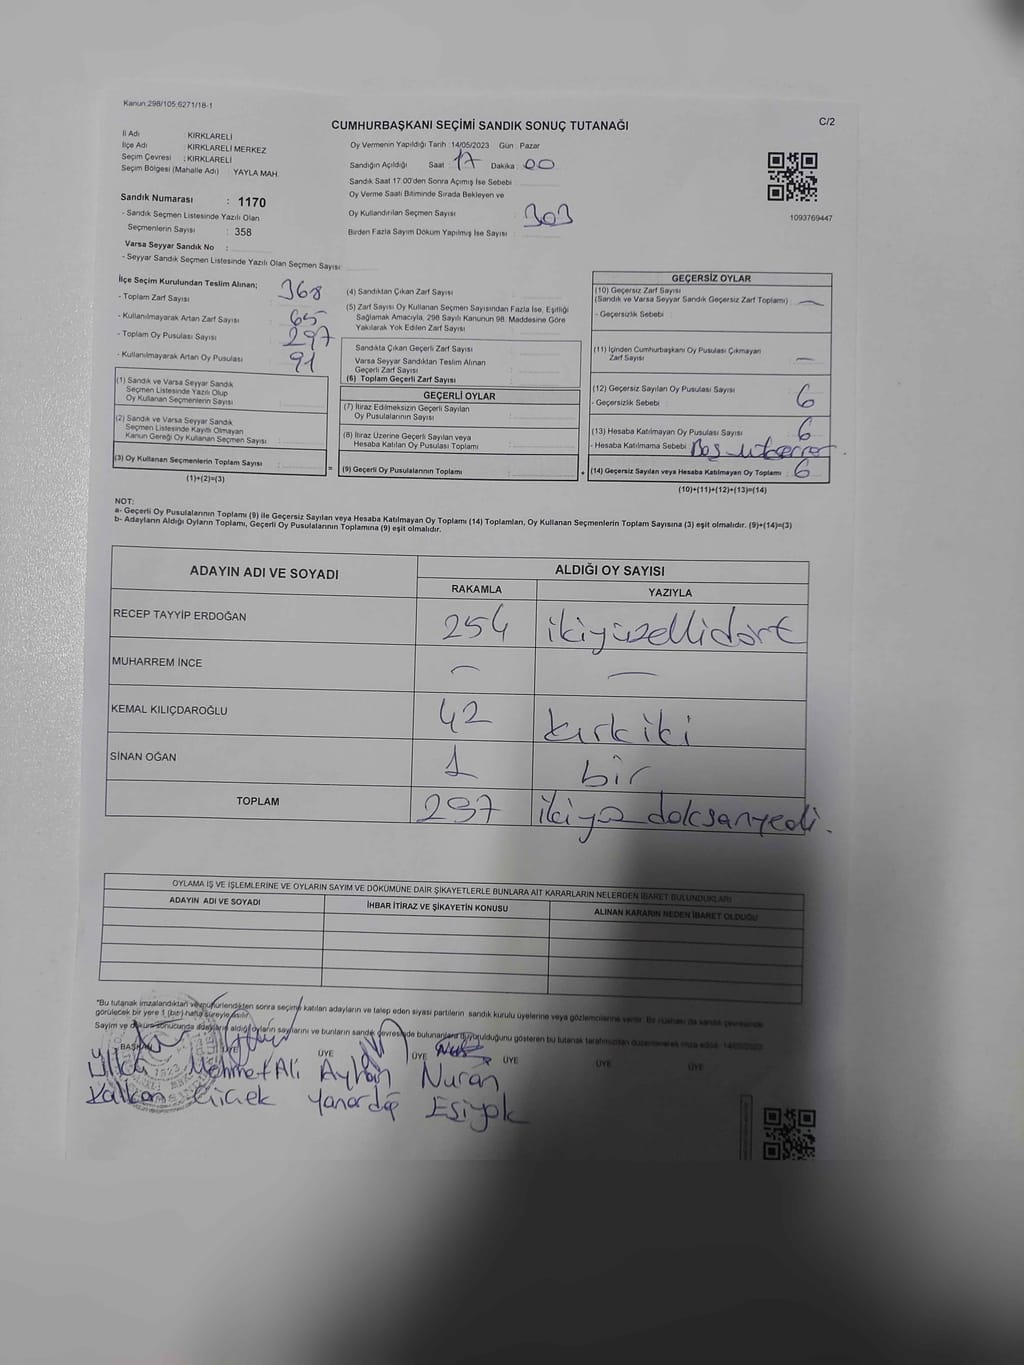 Kanun:298/105;6271/18-1
C/2
CUMHURBAŞKANI SEÇİMİ SANDIK SONUÇ TUTANAĞI
İl Adı : KIRKLARELİ
İlçe Adı : KIRKLARELİ MERKEZ
Seçim Çevresi : KIRKLARELİ
Seçim Bölgesi (Mahalle Adı) : YAYLA MAH.
Sandık Numarası : 1170
- Sandık Seçmen Listesinde Yazılı Olan
Seçmenlerin Sayısı : 358
Varsa Seyyar Sandık No :
- Seyyar Sandık Seçmen Listesinde Yazılı Olan Seçmen Sayısı:
Oy Vermenin Yapıldığı Tarih :14/05/2023 Gün : Pazar
Sandığın Açıldığı Saat : 17 Dakika : 00
Sandık Saat 17:00'den Sonra Açımış İse Sebebi
Oy Verme Saati Bitiminde Sırada Bekleyen ve
Oy Kullandırılan Seçmen Sayısı : 303
Birden Fazla Sayım Döküm Yapılmış İse Sayısı :
1093769447
İlçe Seçim Kurulundan Teslim Alınan;
- Toplam Zarf Sayısı : 368
- Kullanılmayarak Artan Zarf Sayısı : 65
- Toplam Oy Pusulası Sayısı : 297
- Kullanılmayarak Artan Oy Pusulası : 91
(1) Sandık ve Varsa Seyyar Sandık
Seçmen Listesinde Yazılı Olup
Oy Kullanan Seçmenlerin Sayısı :
(2) Sandık ve Varsa Seyyar Sandık
Seçmen Listesinde Kayıtlı Olmayan
Kanun Gereği Oy Kullanan Seçmen Sayısı :
(3) Oy Kullanan Seçmenlerin Toplam Sayısı :
(1)+(2)=(3)
(4) Sandıktan Çıkan Zarf Sayısı :
(5) Zarf Sayısı Oy Kullanan Seçmen Sayısından Fazla İse, Eşitliği
Sağlamak Amacıyla, 298 Sayılı Kanunun 98. Maddesine Göre
Yakılarak Yok Edilen Zarf Sayısı :
Sandıkta Çıkan Geçerli Zarf Sayısı :
Varsa Seyyar Sandıktan Teslim Alınan
Geçerli Zarf Sayısı :
(6) Toplam Geçerli Zarf Sayısı :
GEÇERLİ OYLAR
(7) İtiraz Edilmeksizin Geçerli Sayılan
Oy Pusulalarının Sayısı :
(8) İtiraz Üzerine Geçerli Sayılan veya
Hesaba Katılan Oy Pusulası Toplamı :
= (9) Geçerli Oy Pusulalarının Toplamı : +
GEÇERSİZ OYLAR
(10) Geçersiz Zarf Sayısı
(Sandık ve Varsa Seyyar Sandık Geçersiz Zarf Toplamı) : —
- Geçersizlik Sebebi :
(11) İçinden Cumhurbaşkanı Oy Pusulası Çıkmayan
Zarf Sayısı : —
(12) Geçersiz Sayılan Oy Pusulası Sayısı : 6
- Geçersizlik Sebebi :
(13) Hesaba Katılmayan Oy Pusulası Sayısı : 6
- Hesaba Katılmama Sebebi : Boş
(14) Geçersiz Sayılan veya Hesaba Katılmayan Oy Toplamı : 6
(10)+(11)+(12)+(13)=(14)
NOT:
a- Geçerli Oy Pusulalarının Toplamı (9) ile Geçersiz Sayılan veya Hesaba Katılmayan Oy Toplamı (14) Toplamları, Oy Kullanan Seçmenlerin Toplam Sayısına (3) eşit olmalıdır. (9)+(14)=(3)
b- Adayların Aldığı Oyların Toplamı, Geçerli Oy Pusulalarının Toplamına (9) eşit olmalıdır.
ADAYIN ADI VE SOYADI ALDIĞI OY SAYISI
RAKAMLA YAZIYLA
RECEP TAYYİP ERDOĞAN 254 ikiyüzellidört
MUHARREM İNCE — —
KEMAL KILIÇDAROĞLU 42 kırkiki
SİNAN OĞAN 1 bir
TOPLAM 297 ikiyüz doksanyedi.
OYLAMA İŞ VE İŞLEMLERİNE VE OYLARIN SAYIM VE DÖKÜMÜNE DAİR ŞİKAYETLERLE BUNLARA AİT KARARLARIN NELERDEN İBARET BULUNDUKLARI
ADAYIN ADI VE SOYADI İHBAR İTİRAZ VE ŞİKAYETİN KONUSU ALINAN KARARIN NEDEN İBARET OLDUĞU
*Bu tutanak imzalandıktan ve mühürlendikten sonra seçime katılan adayların ve talep eden siyasi partilerin sandık kurulu üyelerine veya gözlemcilerine verilir. Bir nüshası da sandık çevresinde
görülecek bir yere 1 (bir) hafta süreyle asılır.
Sayım ve döküm sonucunda adayların aldığı oyların sayılarını ve bunların sandık çevresinde bulunanlara duyurulduğunu gösteren bu tutanak tarafımızdan düzenlenerek imza edildi. 14/05/2023
BAŞKAN ÜYE ÜYE ÜYE ÜYE ÜYE ÜYE
Ülkü Mehmet Ali Ayhan Nuran
Kalkan Çiçek Yanardağ Eşiyok